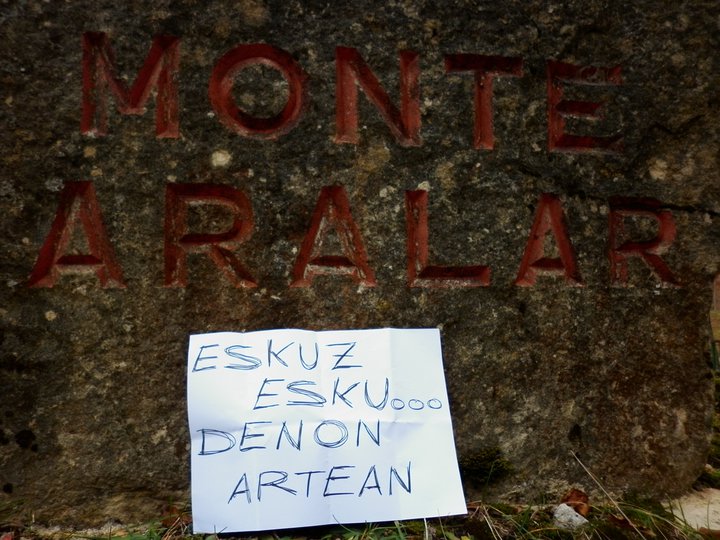 MONTE
ARALAR
ESKUZ
ESKU...
DENON
ARTEAN